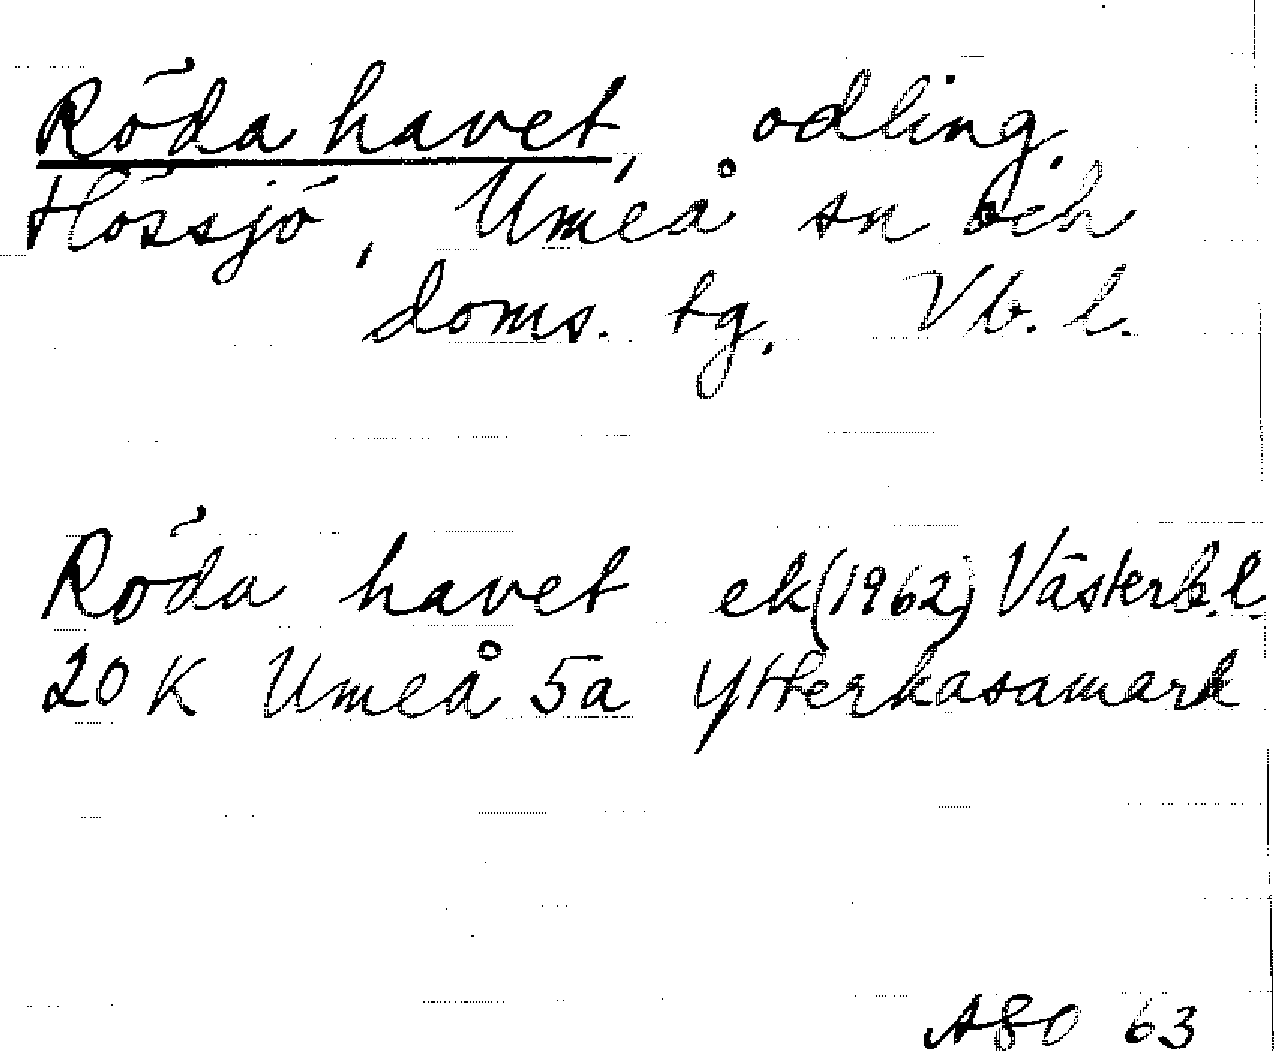 Röda havet, odling.
Hössjö, Umeå sn och
doms. tg. Vb. l.
Röda havet ek (1962) Västerb.l.
20 K Umeå 5a Ytterkasamark
63